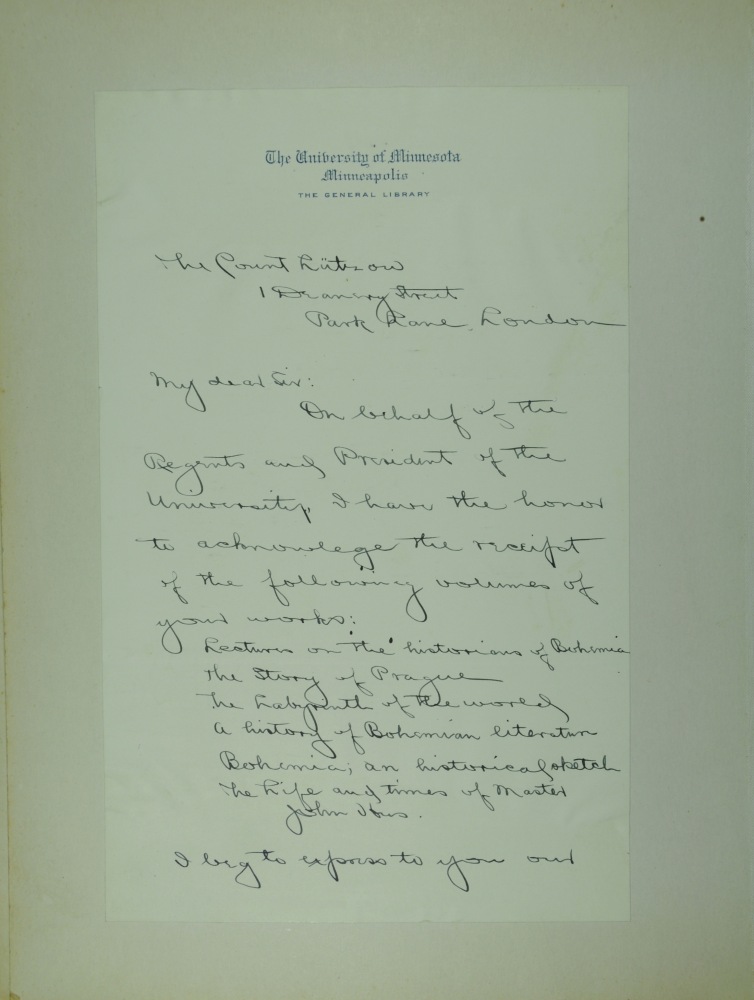 The University of Minnesota
Minneapolis
THE GENERAL LIBRARY
The Count Lützow
1 Deanery Street
Park Lane, London
My dear Sir:
On behalf of the
Regents and President of the
University, I have the honor
to acknowlege the receipt
of the following volumes of
your works:
Lectures on the historians of Bohemia
The Story of Prague
The Labyrinth of the world
A history of Bohemian literature
Bohemia; an historical sketch
The Life and times of Master
John Hus.
I beg to express to you our